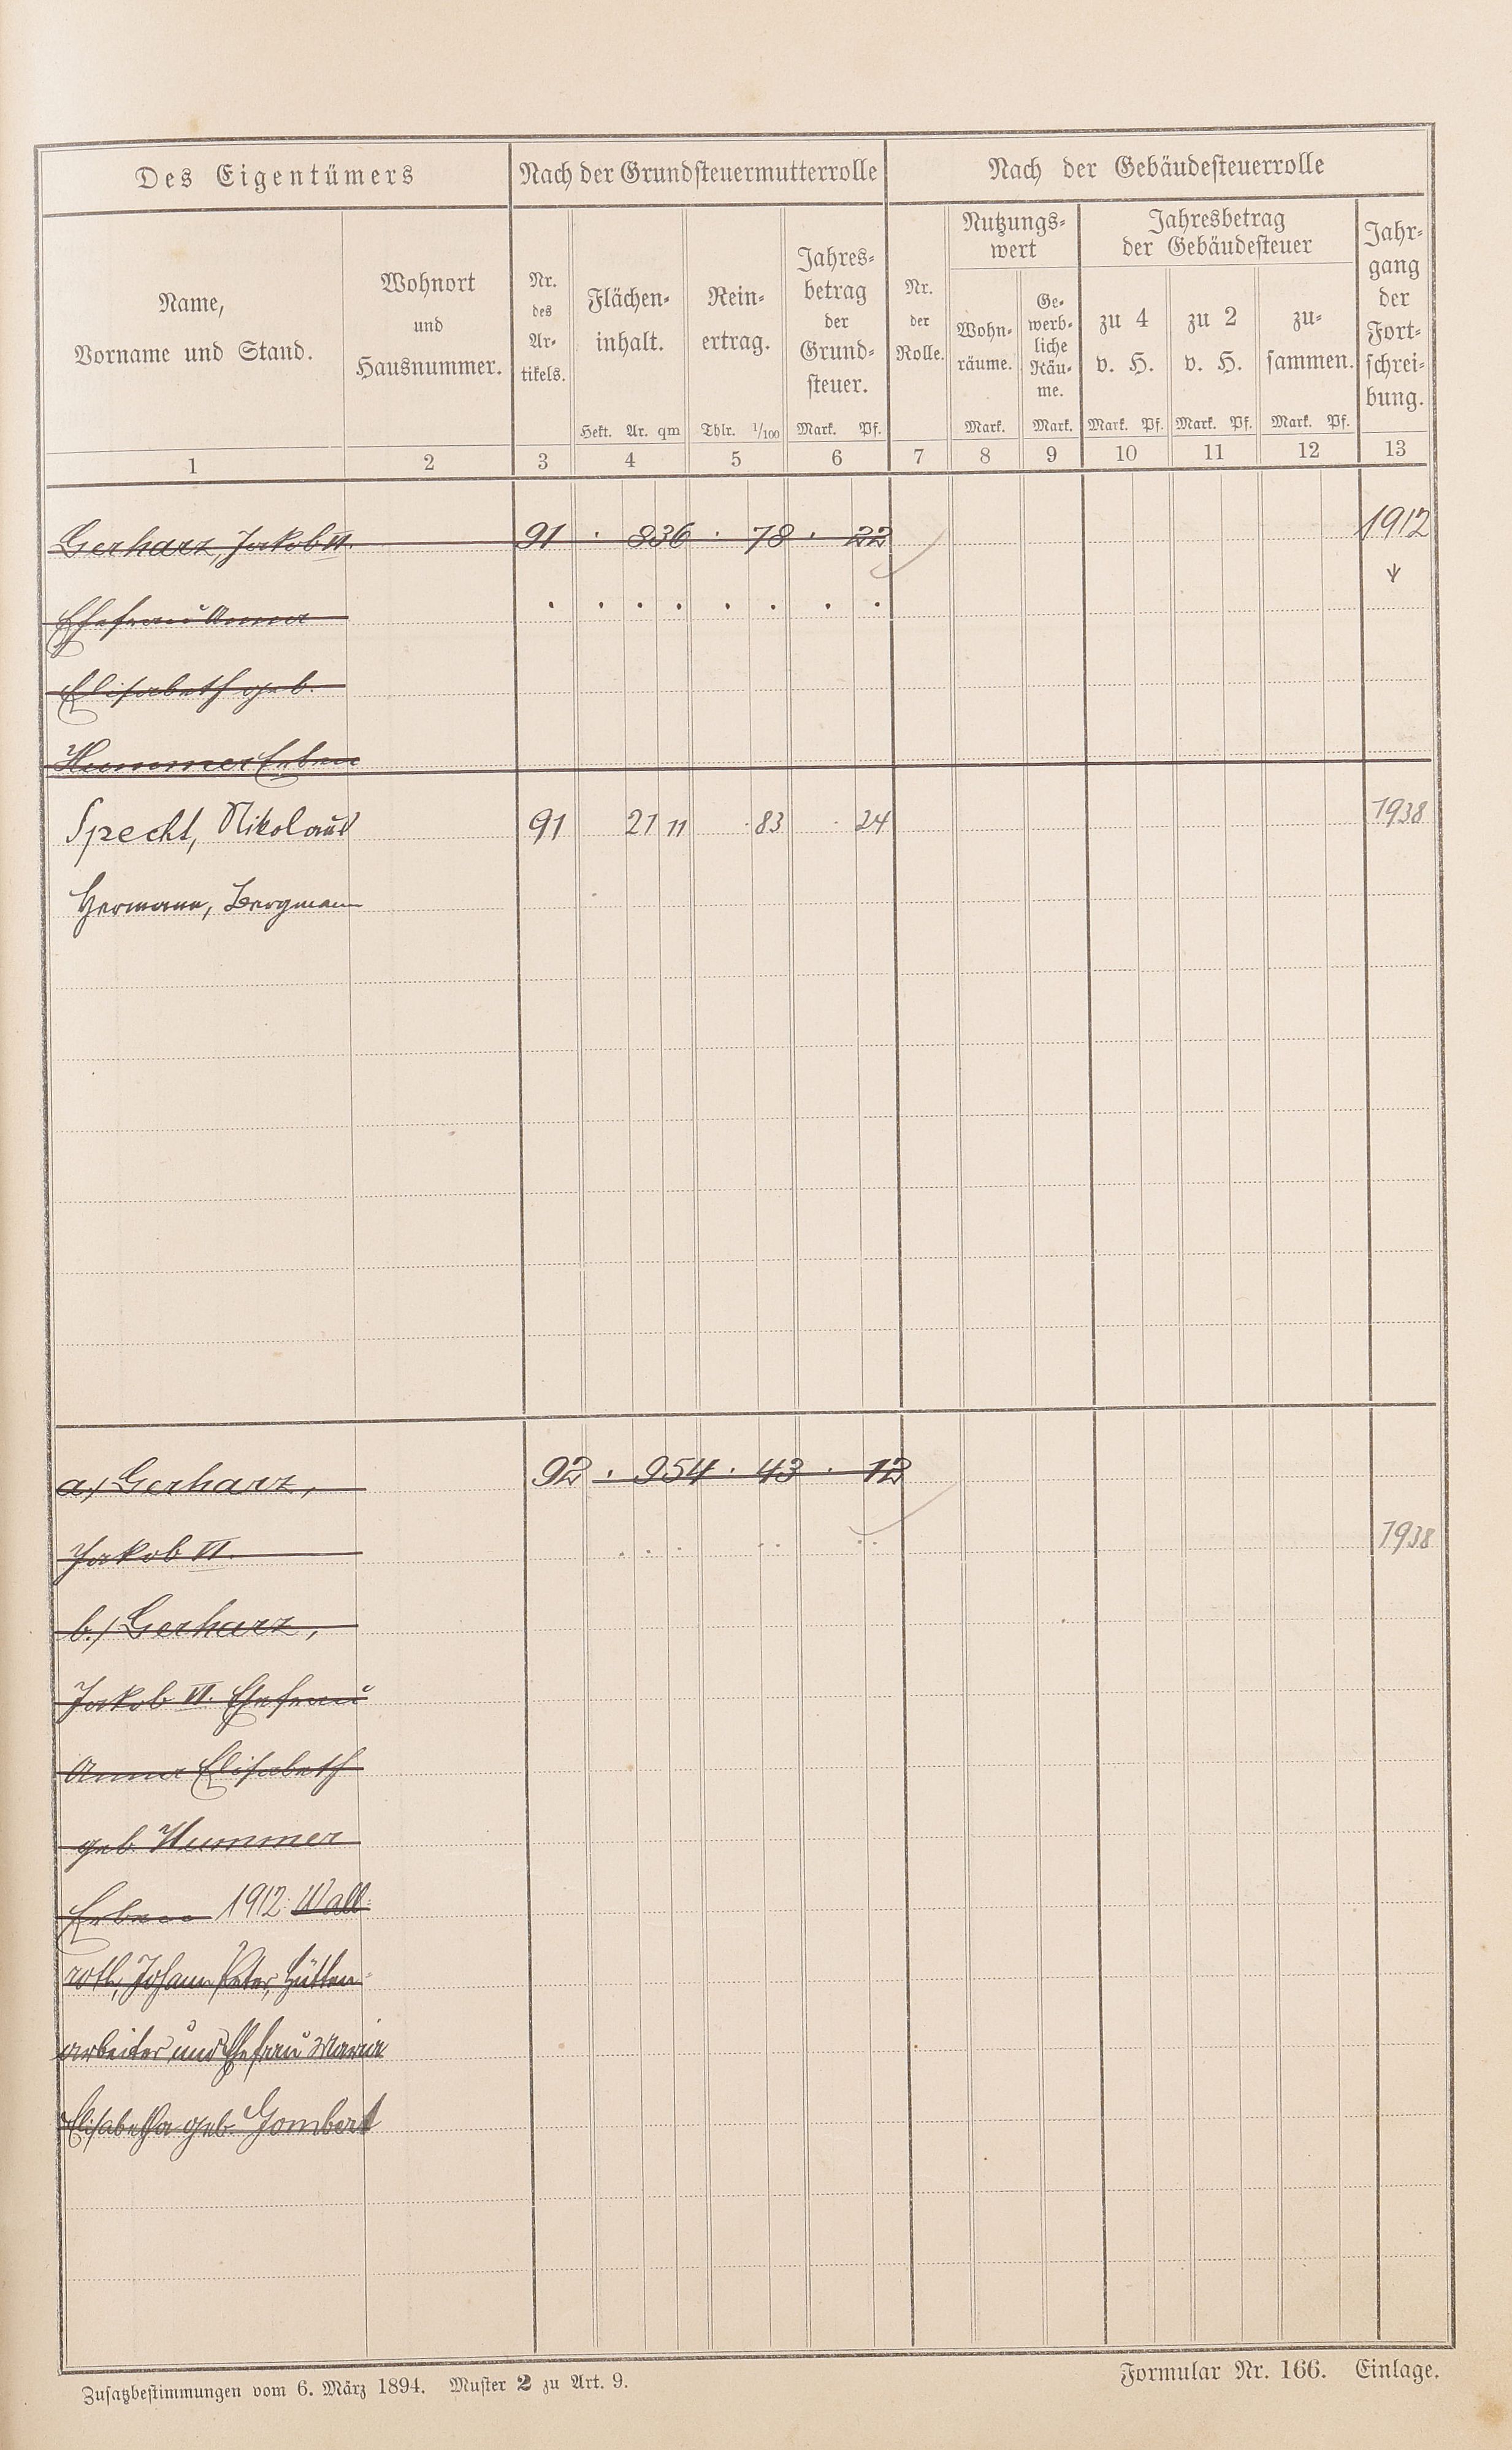 Des Eigentümers Nach der Grundsteuermutterrolle Nach der Gebäudesteuerrolle
Name,
Vorname und Stand.
Wohnort
und
Hausnummer.
Nr.
des
Ar-
tikels.
Flächen-
inhalt.
Hekt. Ar. qm
Rein-
ertrag.
Thlr. 1/100
Jahres-
betrag
der
Grund-
steuer.
Mark. Pf.
Nr.
der
Rolle.
Nutzungs-
wert
Wohn-
räume.
Mark.
Ge-
werb-
liche
Räu-
me.
Mark.
Jahresbetrag
der Gebäudesteuer
zu 4
v. H.
Mark. Pf.
zu 2
v. H.
Mark. Pf.
zu-
sammen.
Mark. Pf.
Jahr-
gang
der
Fort-
schrei-
bung.
1 2 3 4 5 6 7 8 9 10 11 12 13
Gerharz, Jakob VI. 91 · 8 36 · 78 · 22 1912
Ehefrau Anna · · · · · · · ·
Elisabeth geb.
Hummer Erben
Specht, Nikolaus 91 21 11 · 83 · 24 1938
Hermann, Bergmann
a./ Gerharz, 92 · 9 54 · 43 · 12
Jakob VI. 1938
b./ Gerharz,
Jakob VI. Ehefrau
Anna Elisabeth
geb. Hummer
Erben 1912: Wall-
roth, Johann Peter, Hütten-
arbeiter und Ehefrau Maria
Elisabetha geb. Gombert
Zusatzbestimmungen vom 6. März 1894. Muster 2 zu Art. 9.
Formular Nr. 166. Einlage.